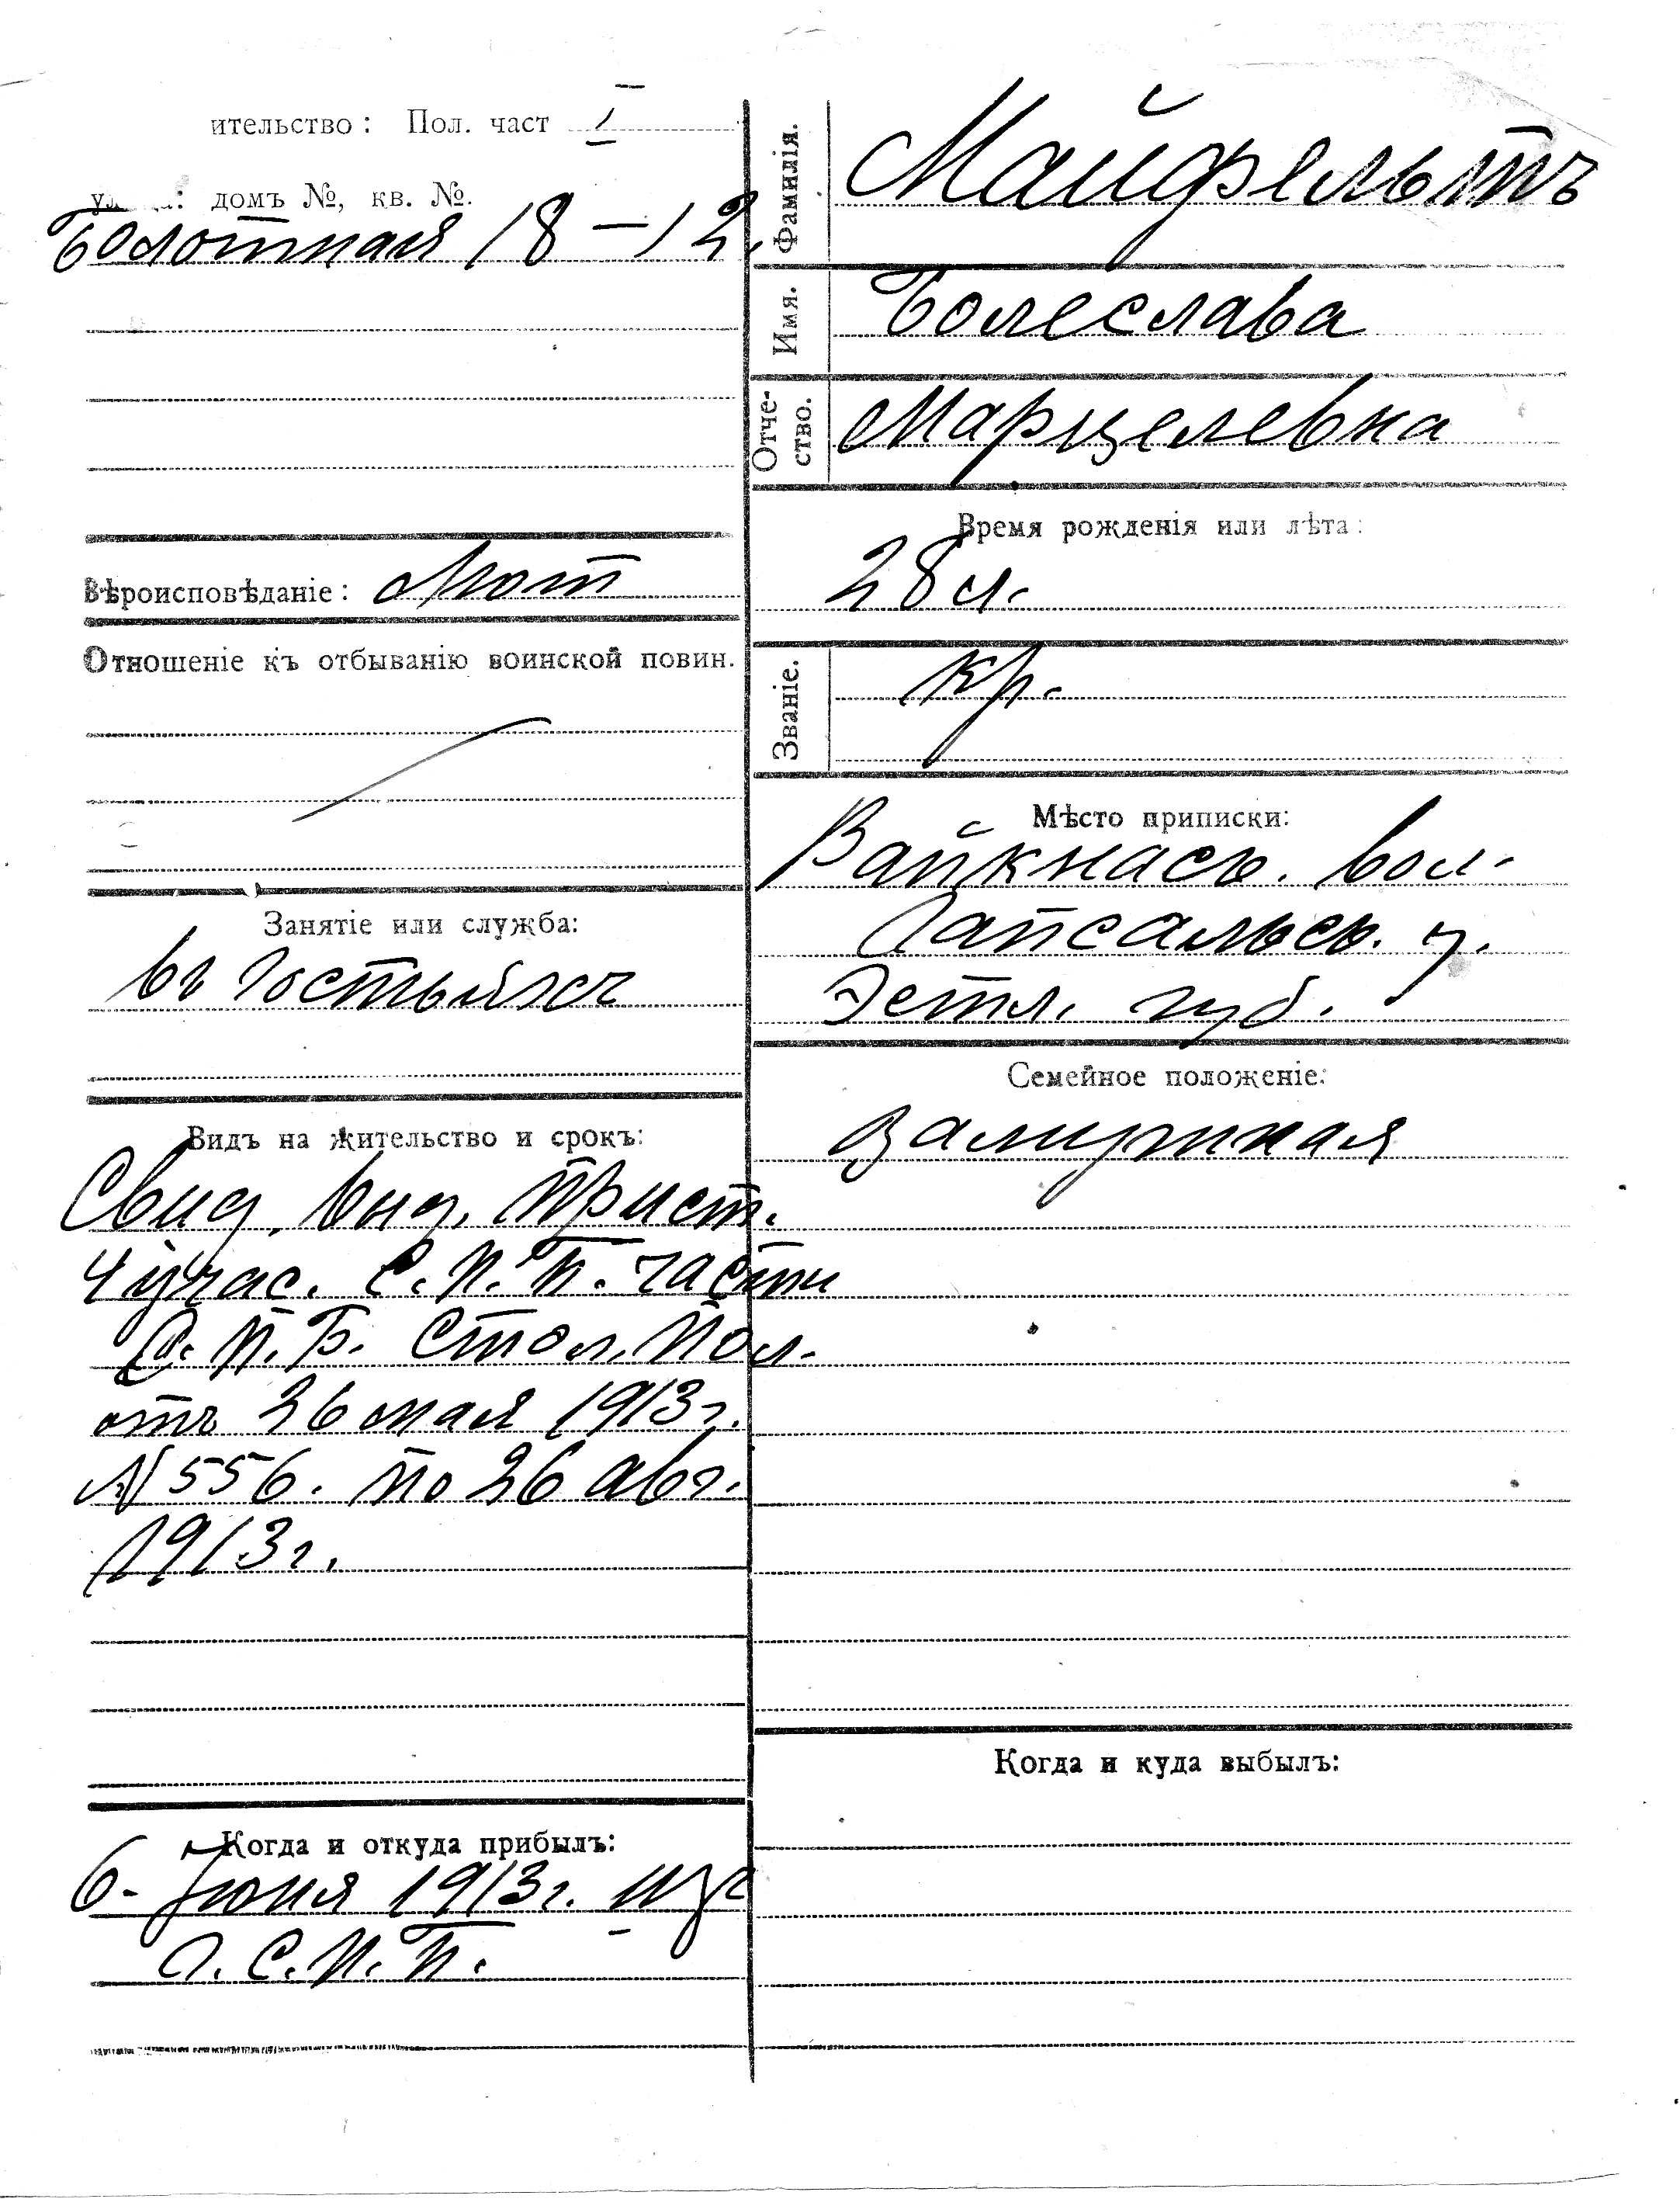 ительство: Пол. част I
домъ №, кв. №.
Болотная 18-12.
Вѣроисповѣданіе: Лют
Отношеніе къ отбыванію воинской повин.
Занятіе или служба:
въ
Видъ на жительство и срокъ:
Свид. выд. Прист.
4 учас. С.П.Б. части
С.П.Б. Стол. Пол.
отъ 26 мая 1913 г.
№ 556. по 26 авг.
1913 г.
Когда и откуда прибылъ:
6- Іюня 1913 г. изъ
г. С.П.Б.
Фамилія. Майфельтъ
Имя. Болеслава
Отче-
ство. Марцелевна
Время рожденія или лѣта:
28 л.
Званіе. Кр.
Мѣсто приписки:
вол.
Гапсальск. у.
Эстл. губ.
Семейное положеніе:
Замужная
Когда и куда выбылъ: